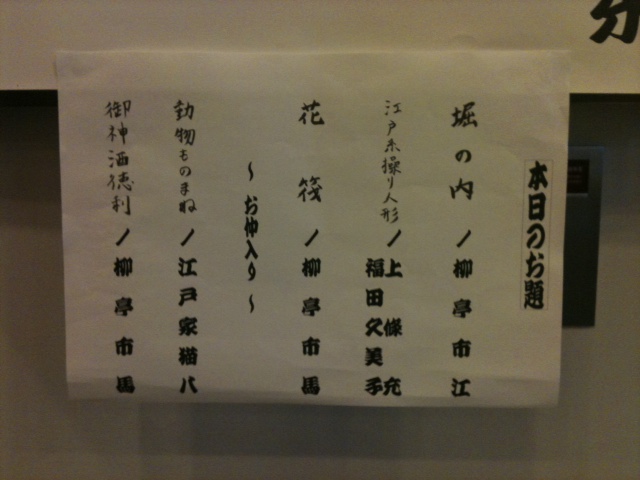 本日のお題
堀の内／柳亭市江
江戸糸操り人形／上條充
福田久美子
花筏／柳亭市馬
～お仲入り～
動物ものまね／江戸家猫八
御神酒徳利／柳亭市馬